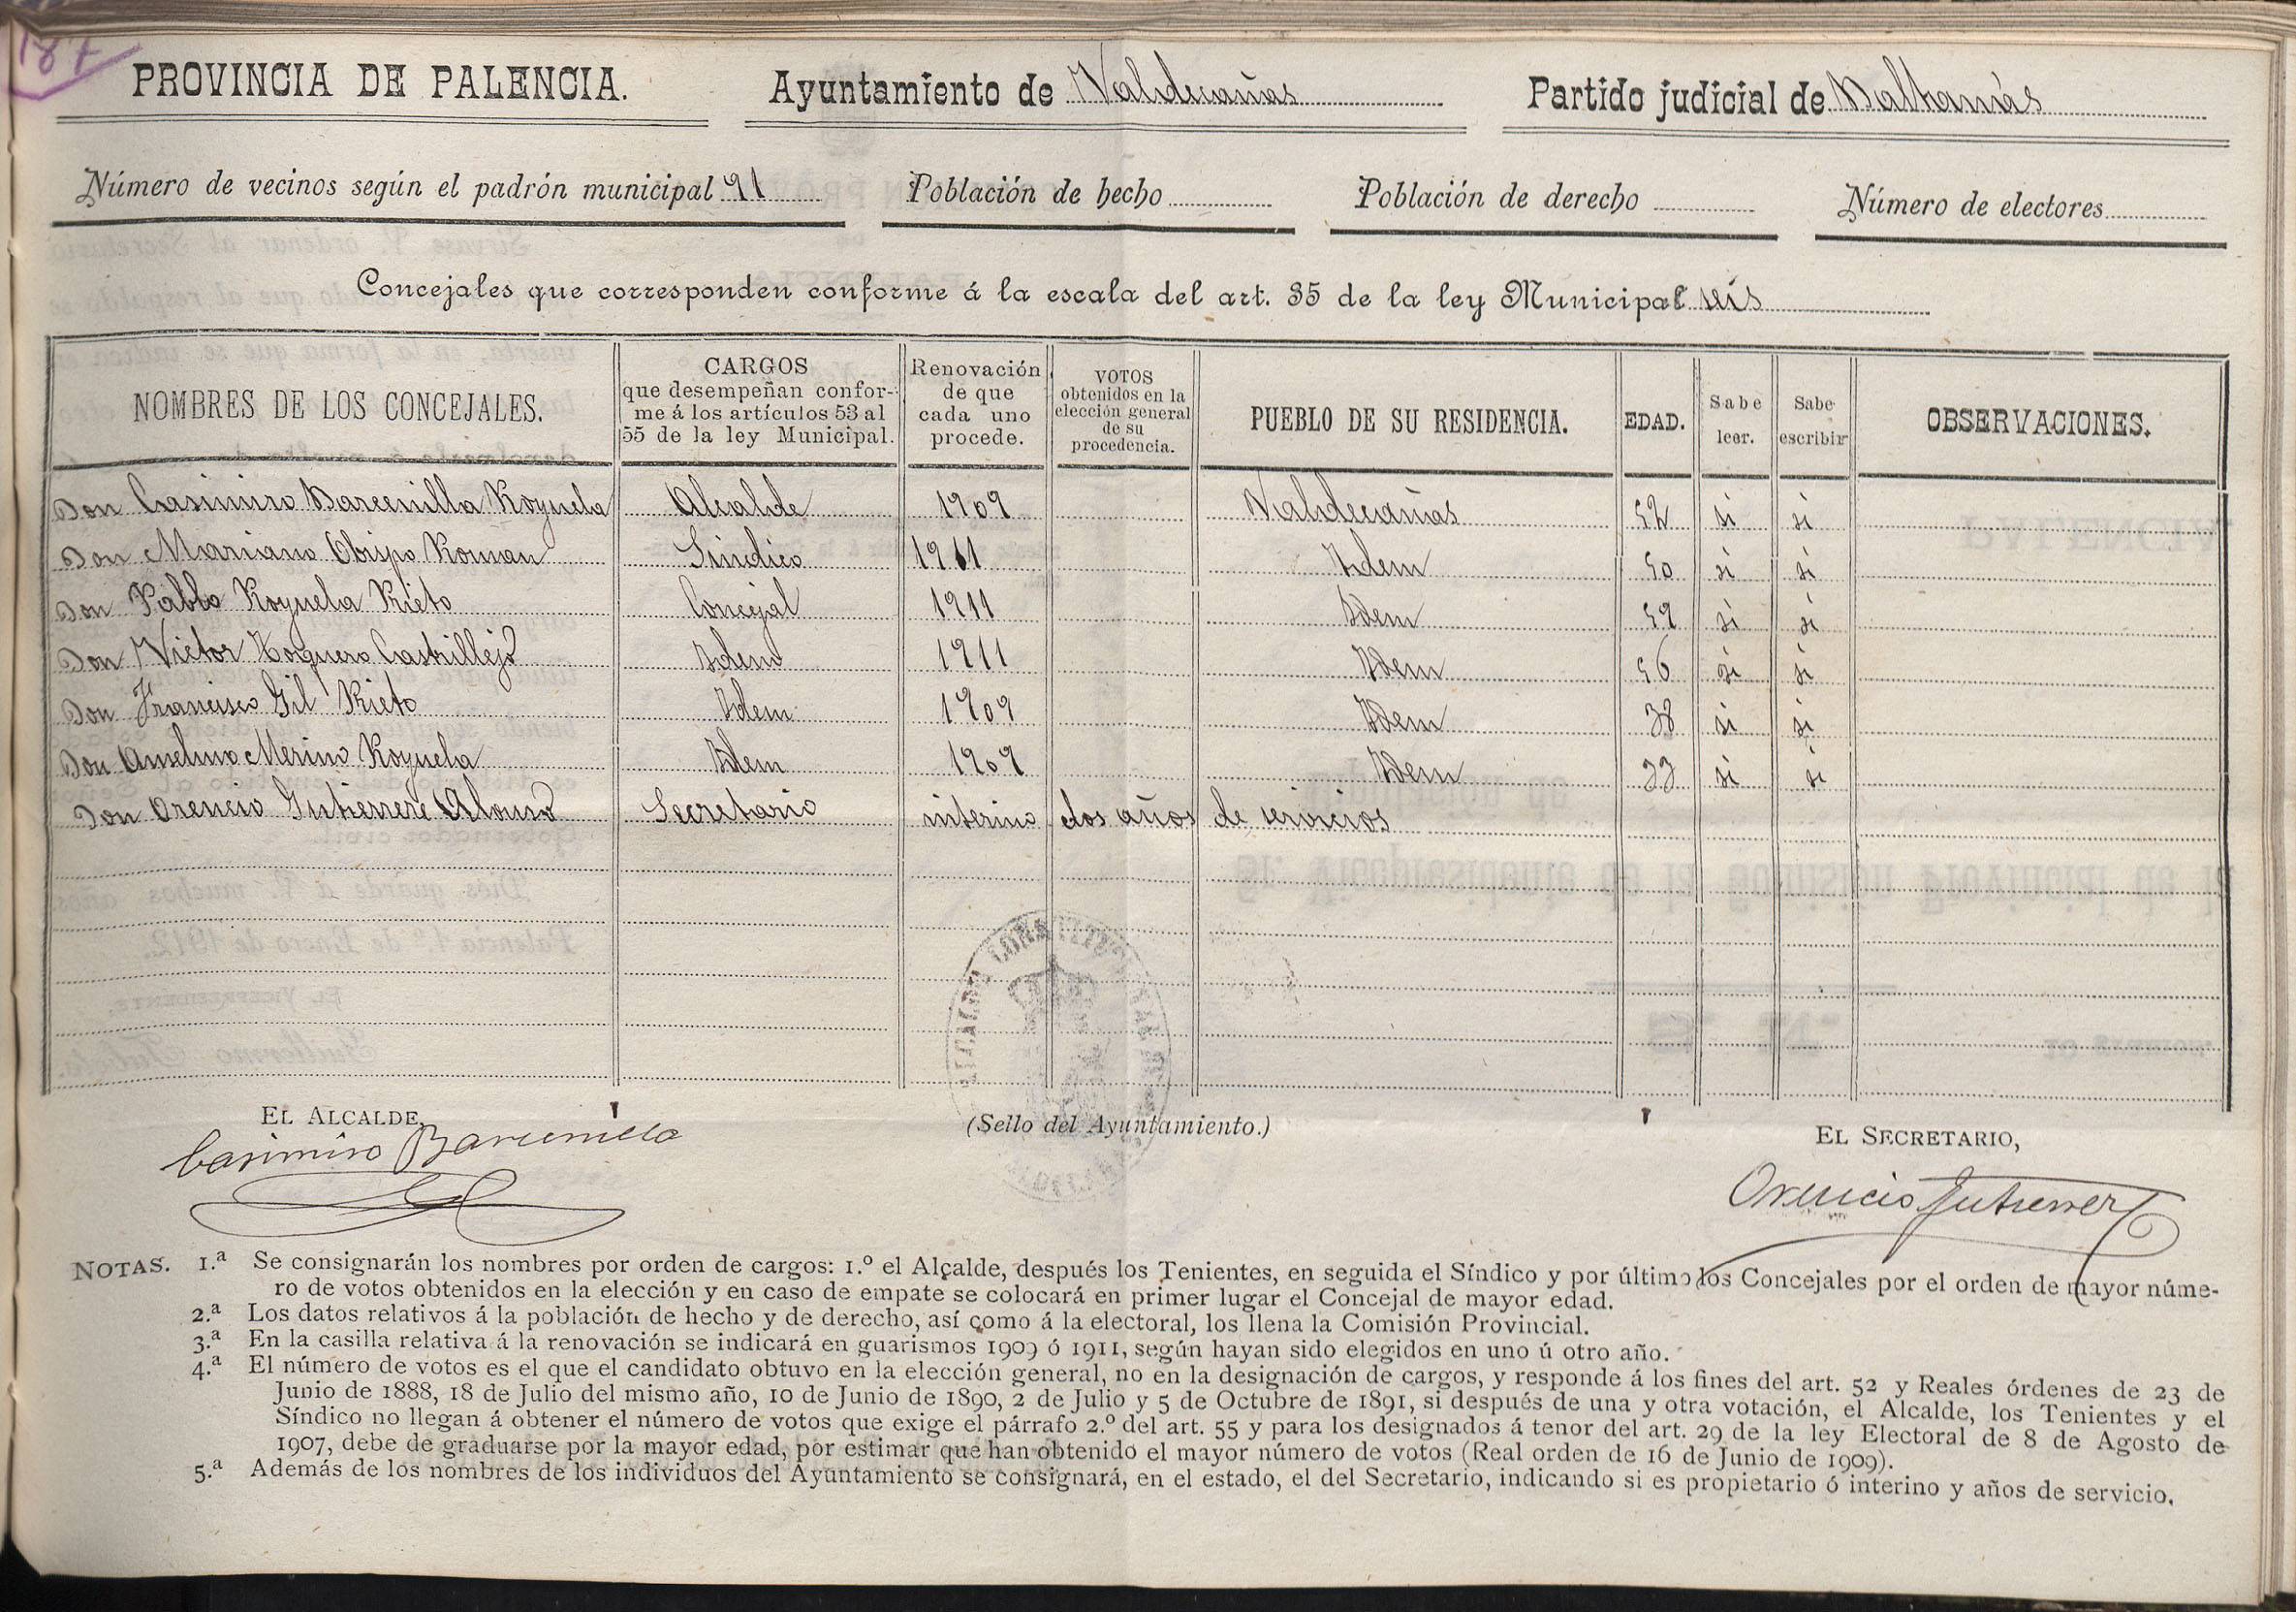 187
PROVINCIA DE PALENCIA. Ayuntamiento de Valdecañas Partido judicial de Baltanás
Número de vecinos según el padrón municipal 91 Población de hecho Población de derecho Número de electores
Concejales que corresponden conforme á la escala del art. 35 de la ley Municipal seis
NOMBRES DE LOS CONCEJALES. CARGOS que desempeñan confor-me á los artículos 53 al 55 de la ley Municipal. Renovación de que cada uno procede. VOTOS obtenidos en la elección general de su procedencia. PUEBLO DE SU RESIDENCIA. EDAD. Sabe leer. Sabe escribir OBSERVACIONES.
Don Casimiro Barcenilla Royuela Alcalde 1909 Valdecañas 52 si si
Don Mariano Obispo Roman Sindico 1911 Idem 50 si si
Don Pablo Royuela Nieto Concejal 1911 Idem 59 si si
Don Victor Noguero Castrillejo Idem 1911 Idem 56 si si
Don Francisco Gil Nieto Idem 1909 Idem 38 si si
Don Anselmo Merino Royuela Idem 1909 Idem 33 si si
Don Orencio Gutierrere Alonso Secretario interino dos años de servicios
EL ALCALDE, (Sello del Ayuntamiento.) EL SECRETARIO,
Casimiro Barcenilla Orencio Gutierrez
NOTAS. 1.ª Se consignarán los nombres por orden de cargos: 1.º el Alcalde, después los Tenientes, en seguida el Síndico y por último los Concejales por el orden de mayor núme-
ro de votos obtenidos en la elección y en caso de empate se colocará en primer lugar el Concejal de mayor edad.
2.ª Los datos relativos á la población de hecho y de derecho, así como á la electoral, los llena la Comisión Provincial.
3.ª En la casilla relativa á la renovación se indicará en guarismos 1909 ó 1911, según hayan sido elegidos en uno ú otro año.
4.ª El número de votos es el que el candidato obtuvo en la elección general, no en la designación de cargos, y responde á los fines del art. 52 y Reales órdenes de 23 de
Junio de 1888, 18 de Julio del mismo año, 10 de Junio de 1890, 2 de Julio y 5 de Octubre de 1891, si después de una y otra votación, el Alcalde, los Tenientes y el
Síndico no llegan á obtener el número de votos que exige el párrafo 2.º del art. 55 y para los designados á tenor del art. 29 de la ley Electoral de 8 de Agosto de
1907, debe de graduarse por la mayor edad, por estimar que han obtenido el mayor número de votos (Real orden de 16 de Junio de 1909).
5.ª Además de los nombres de los individuos del Ayuntamiento se consignará, en el estado, el del Secretario, indicando si es propietario ó interino y años de servicio.